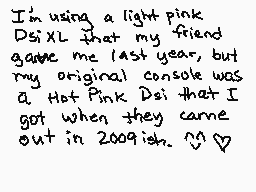 I'm using a light pink
Dsi XL that my friend
gave me last year, but
my original console was
a Hot Pink Dsi that I
got when they came
out in 2009ish. ^^ ♡